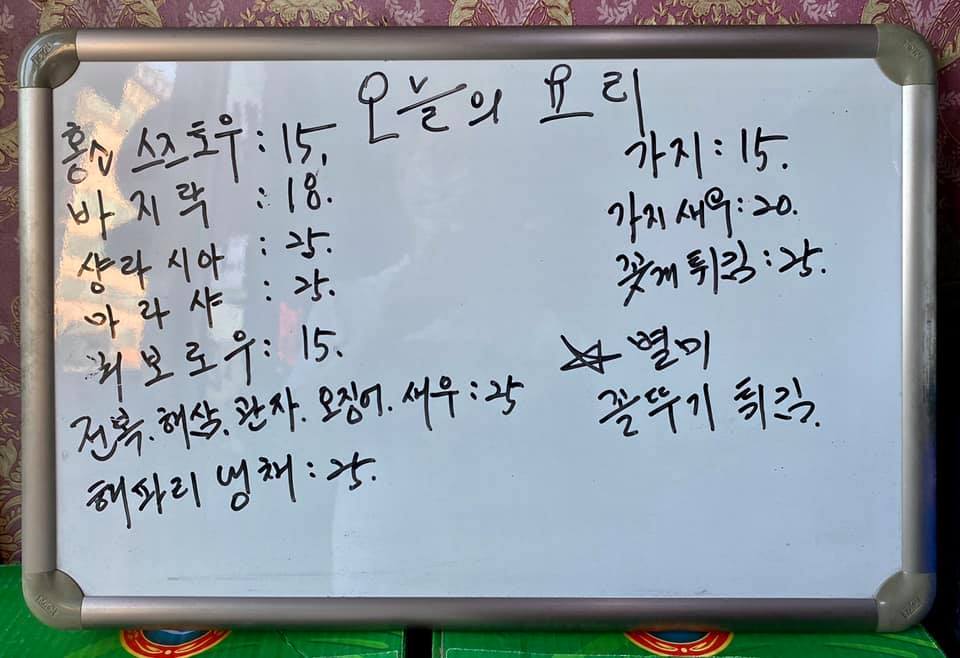 오늘의 요리
홍소 스즈토우 : 15.
바지락 : 18.
샹라시아 : 25.
마라샤 : 25.
꿔보로우 : 15.
전복. 해삼. 관자. 오징어. 새우 : 25
해파리 냉채 : 25.
가지 : 15.
가지새우 : 20.
꽃게 튀김 : 25.
☆ 별미
꼴뚜기 튀김.